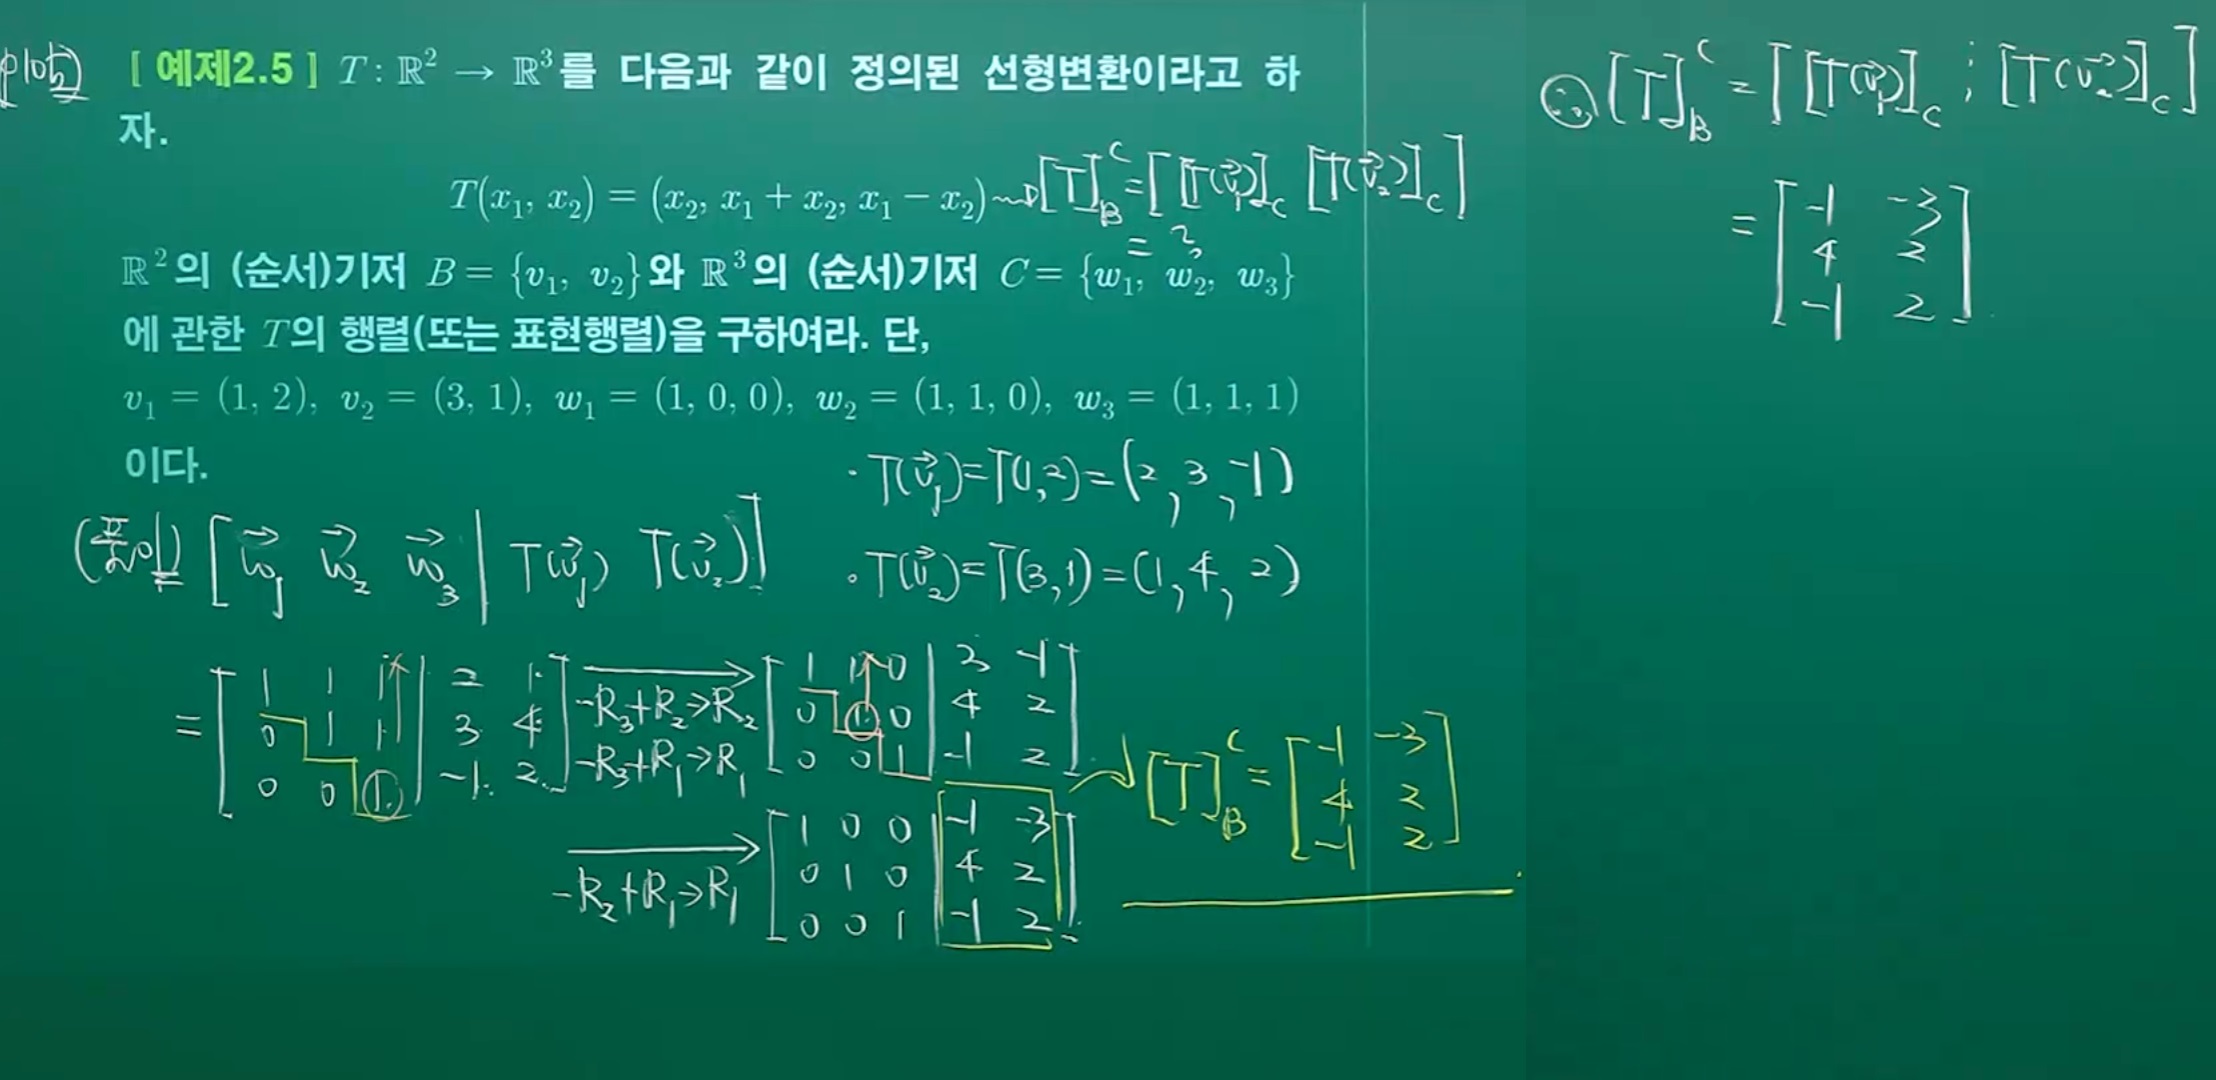 [ 예제2.5 ] T : ℝ² → ℝ³를 다음과 같이 정의된 선형변환이라고 하
자.
T(x₁, x₂) = (x₂, x₁ + x₂, x₁ − x₂) ⇝ [T]_B^C = [ [T(v⃗₁)]_C [T(v⃗₂)]_C ]
= ?
ℝ²의 (순서)기저 B = {v₁, v₂}와 ℝ³의 (순서)기저 C = {w₁, w₂, w₃}
에 관한 T의 행렬(또는 표현행렬)을 구하여라. 단,
v₁ = (1, 2), v₂ = (3, 1), w₁ = (1, 0, 0), w₂ = (1, 1, 0), w₃ = (1, 1, 1)
이다.
· T(v⃗₁) = T(1, 2) = (2, 3, -1)
· T(v⃗₂) = T(3, 1) = (1, 4, 2)
(풀이) [ w⃗₁ w⃗₂ w⃗₃ | T(v⃗₁) T(v⃗₂) ]
= [ 1 1 1 | 2 1
0 1 1 | 3 4
0 0 1 | -1 2 ]
-R₃+R₂→R₂
-R₃+R₁→R₁
[ 1 1 0 | 3 -1
0 1 0 | 4 2
0 0 1 | -1 2 ]
-R₂+R₁→R₁
[ 1 0 0 | -1 -3
0 1 0 | 4 2
0 0 1 | -1 2 ]
[T]_B^C = [ -1 -3
4 2
-1 2 ]
∴ [T]_B^C = [ [T(v⃗₁)]_C ⋮ [T(v⃗₂)]_C ]
= [ -1 -3
4 2
-1 2 ]